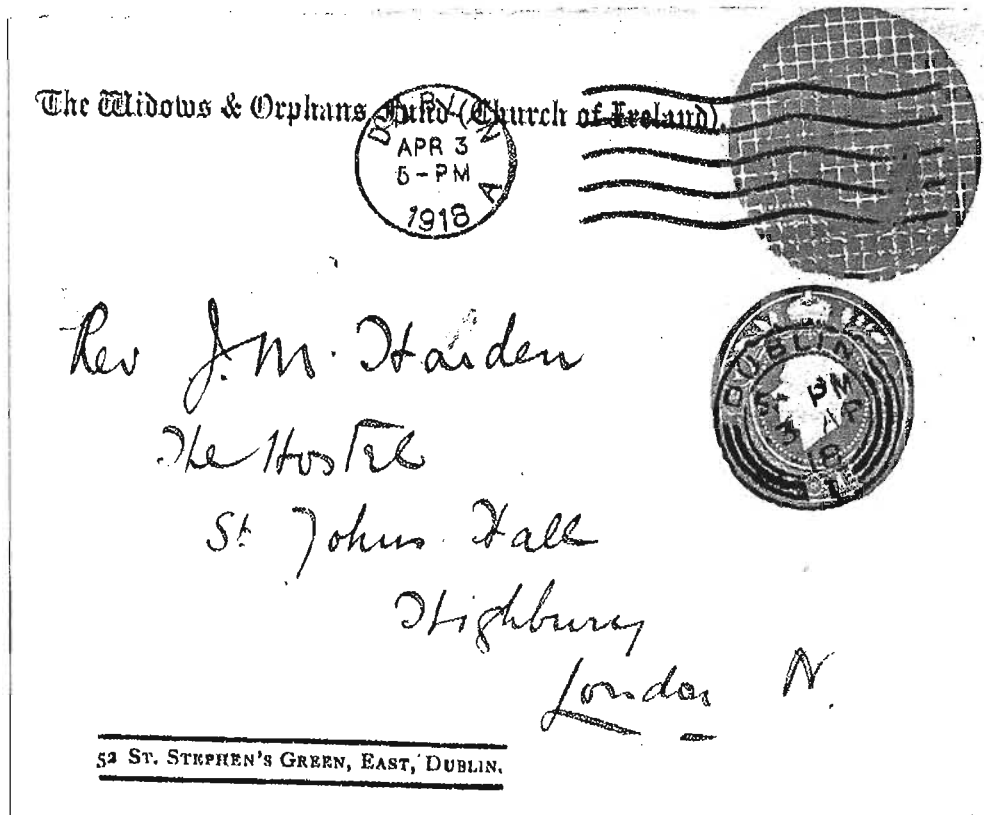 The Widows & Orphans Fund (Church of Ireland).
DUBLIN
APR 3
5-PM
1918
A
DUBLIN
5 PM
3 AP
18
Rev J. M. Harden
The Hostel
St Johns Hall
Highbury
London N.
52 ST. STEPHEN'S GREEN, EAST, DUBLIN.